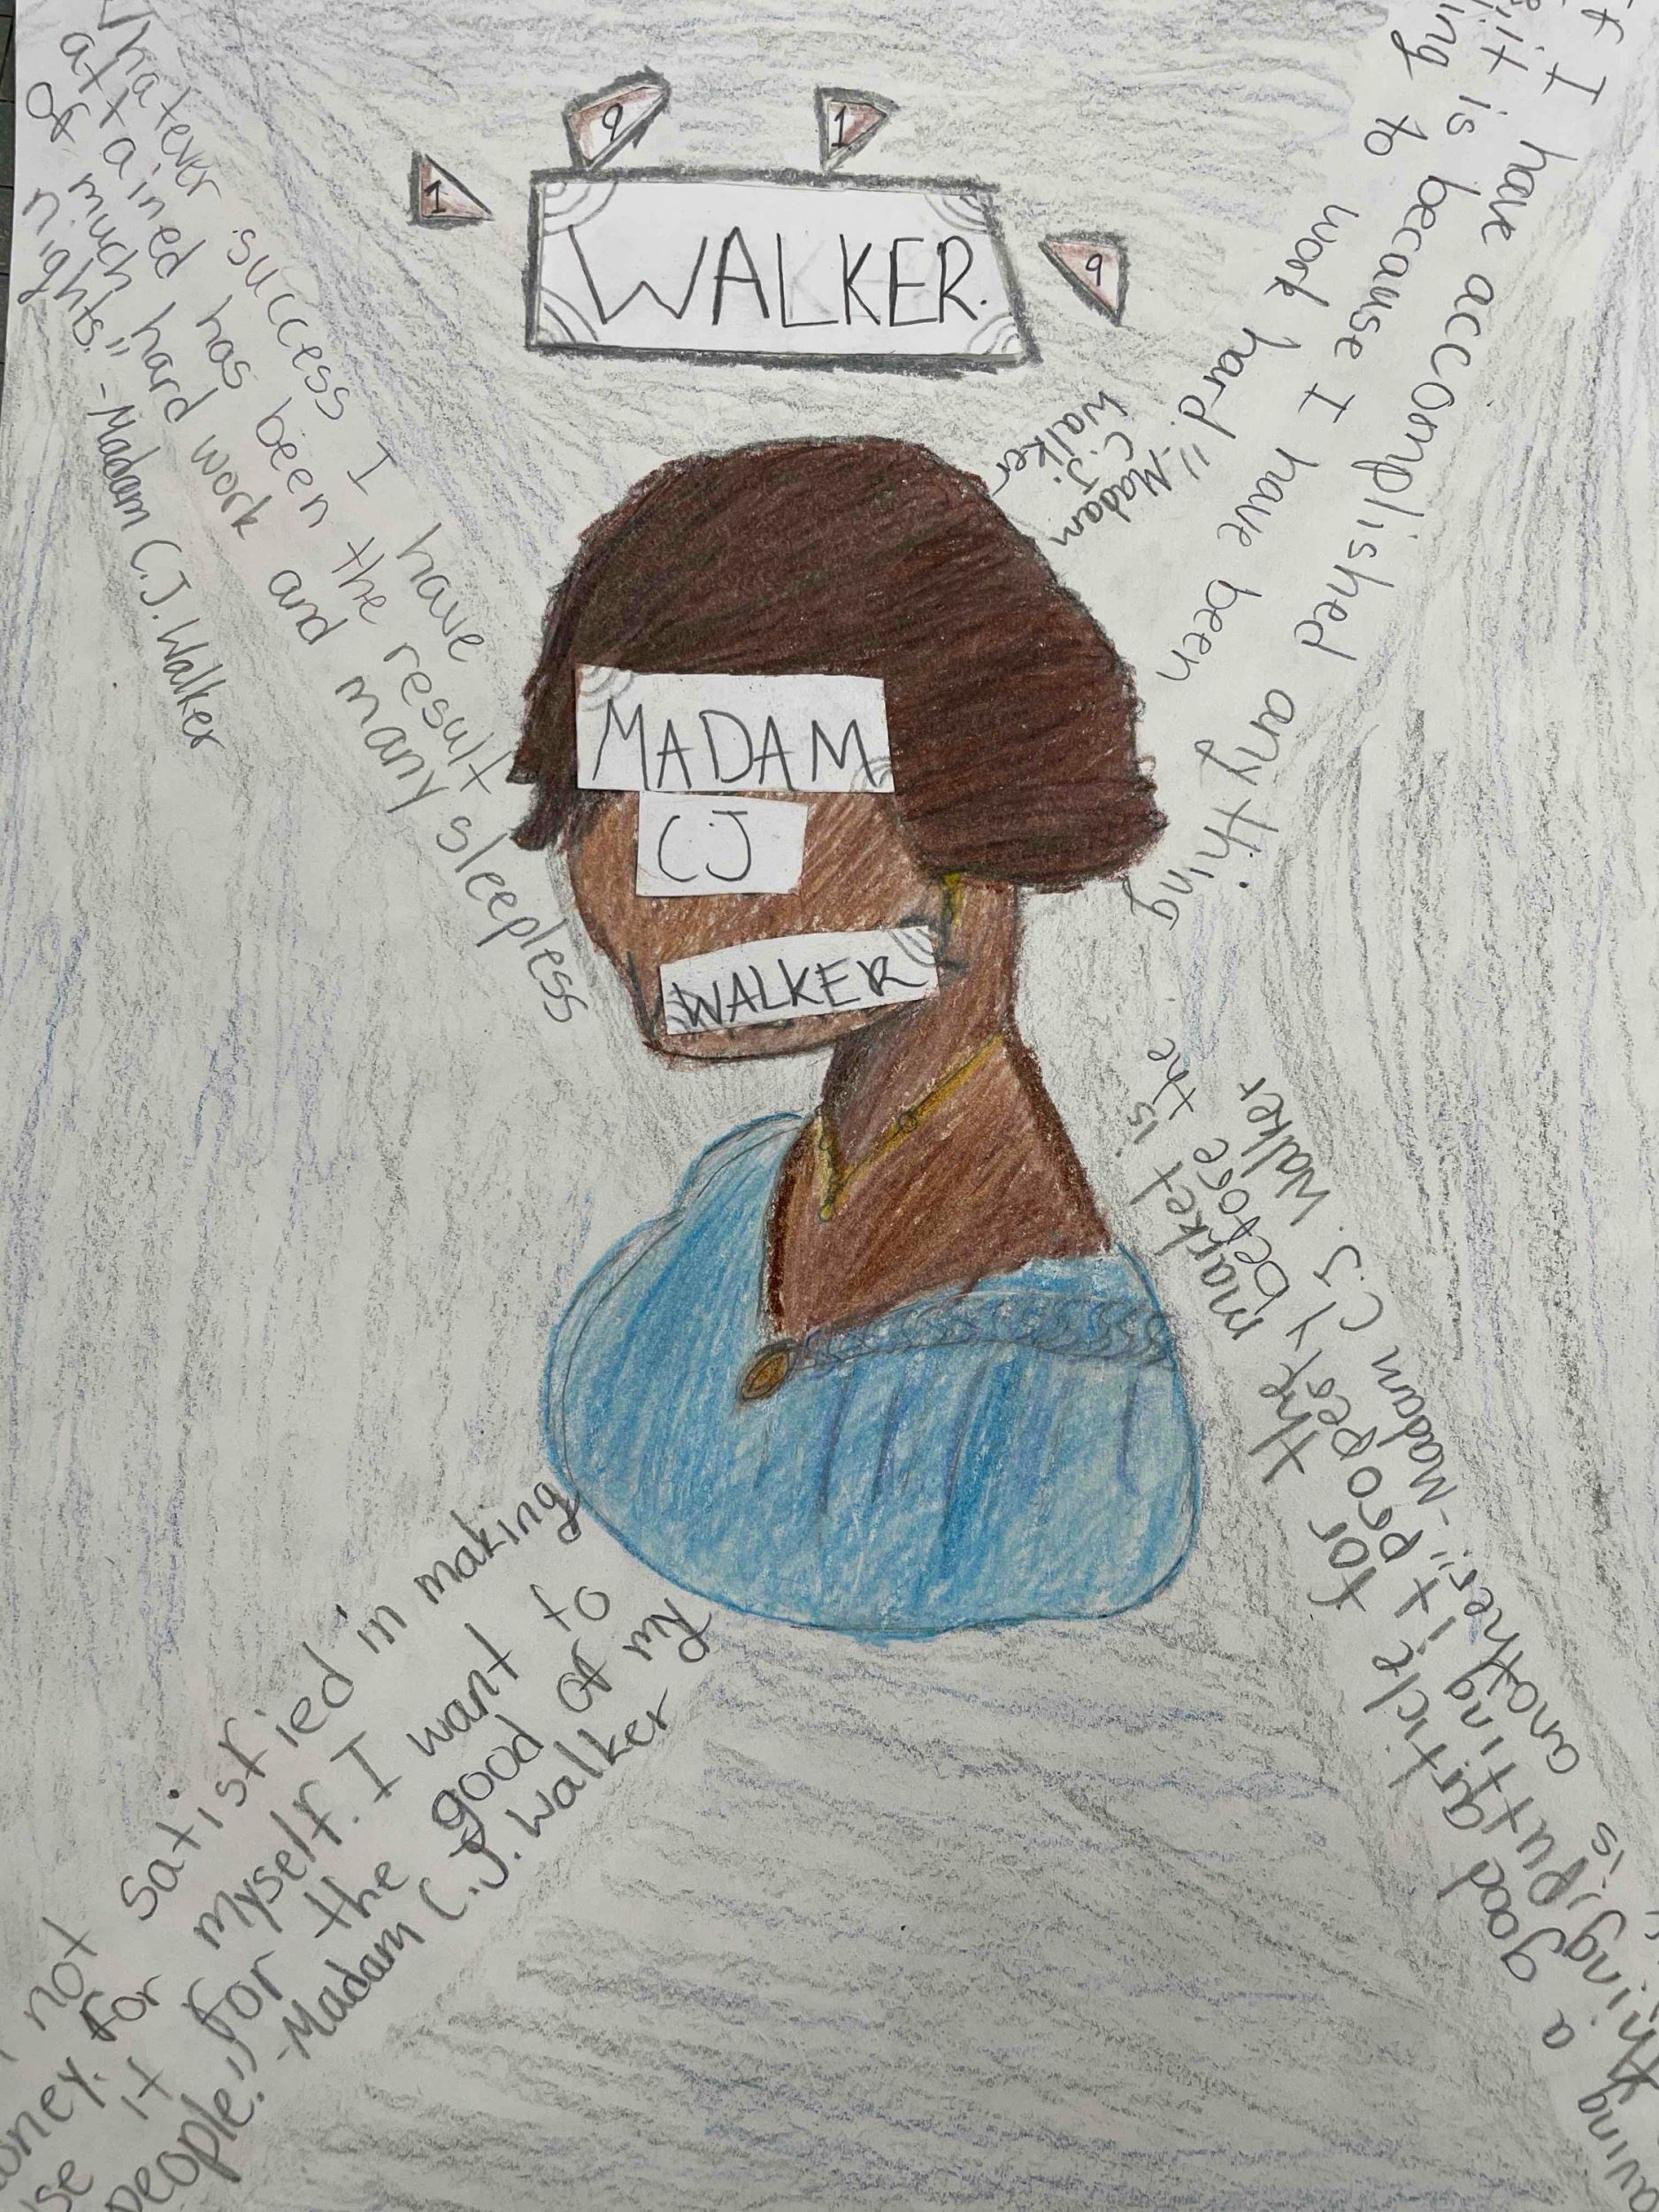 1 9 1 9
WALKER.
MADAM
CJ
WALKER
Whatever success I have
attained has been the result
of much hard work and many sleepless
nights."
-Madam C.J. Walker
If I have accomplished any thing
it is because I have been
to work hard"
-Madam
C.J.
Walker
not satisfied in making
for myself. I want to
it for the good of my
people."
-Madam C.J. Walker
a good article for the market is the
thing, putting it properly before the
is another." -Madam C.J. Walker